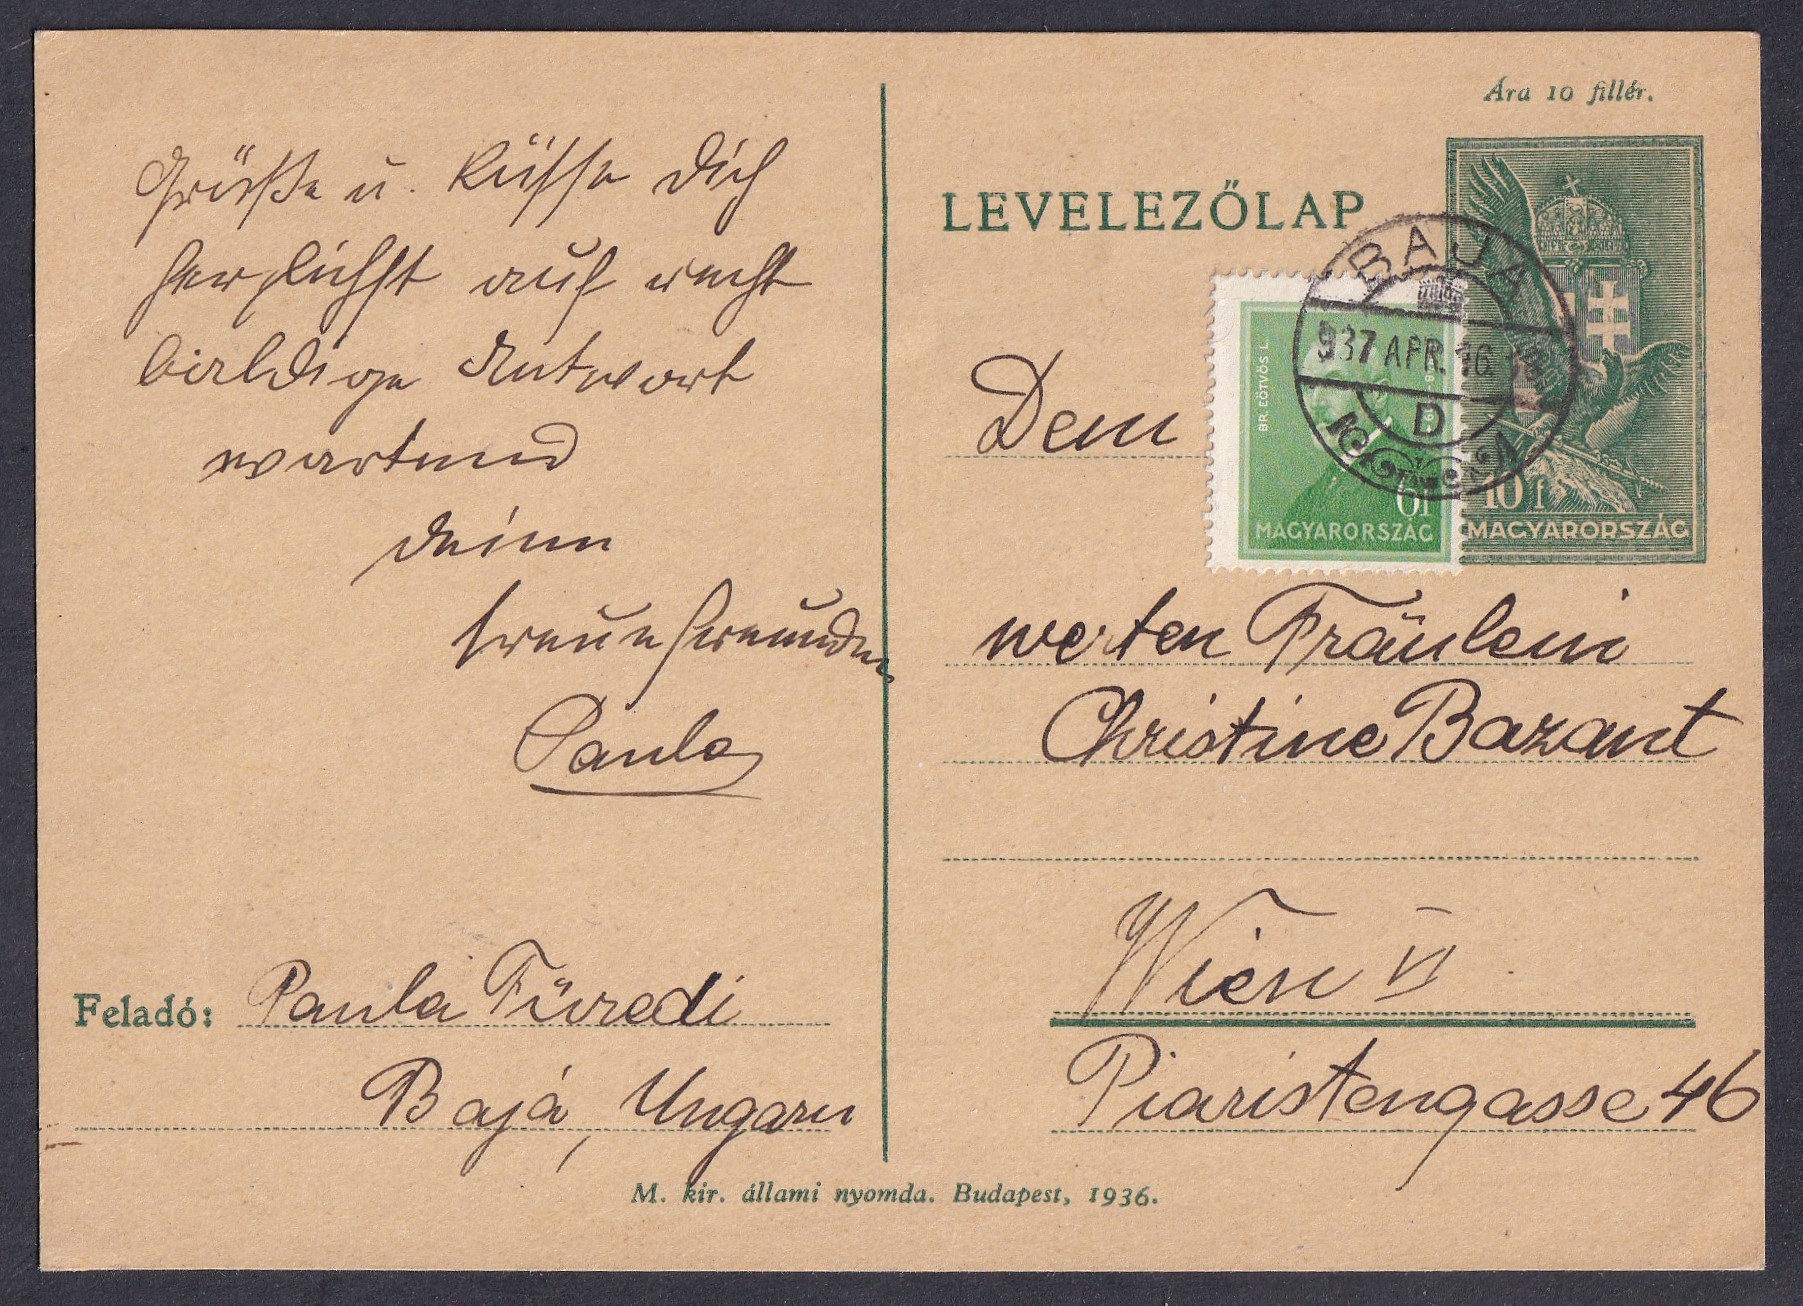 Grüße u. küsse Dich
herzlichst auf recht
baldige Antwort
wartend
deine
treue Freundin
Paula
Feladó: Paula Füredi
Bajá, Ungarn
Ára 10 fillér.
LEVELEZŐLAP
BAJA
937 APR. 16.
D
BR. EÖTVÖS L.
6f
MAGYARORSZÁG
10 f
MAGYARORSZÁG
Dem
werten Fräulein
Christine Bazant
Wien VI
Piaristengasse 46
M. kir. állami nyomda. Budapest, 1936.